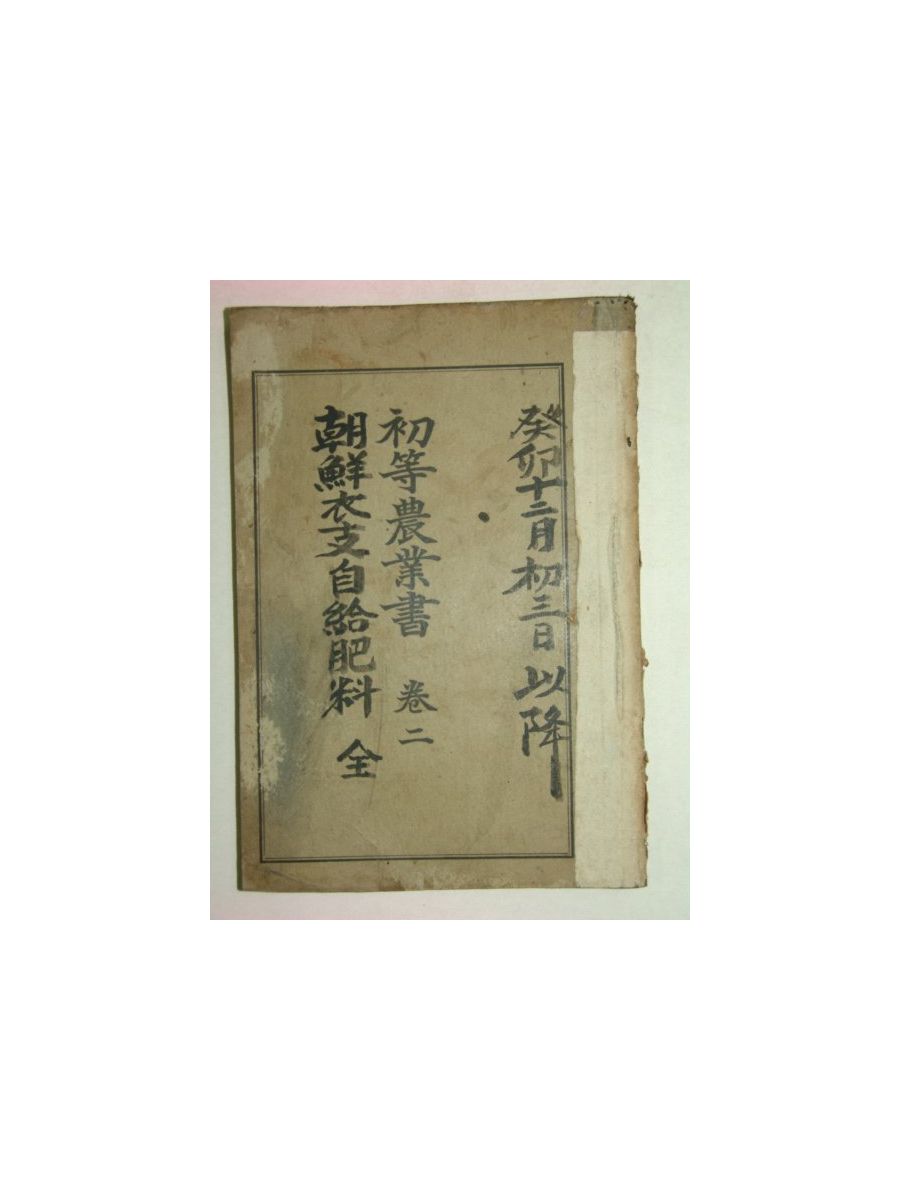 癸卯十二月初三日以降
初等農業書 卷二
朝鮮衣支自給肥料 全